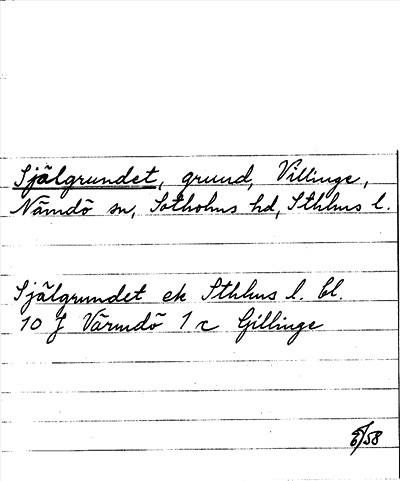 Själgrundet, grund, Villinge,
Nämdö sn, Sotholms hd, Sthlms l.
Själgrundet ek Sthlms l. bl.
10 f Värmdö 1 c Gillinge
/58